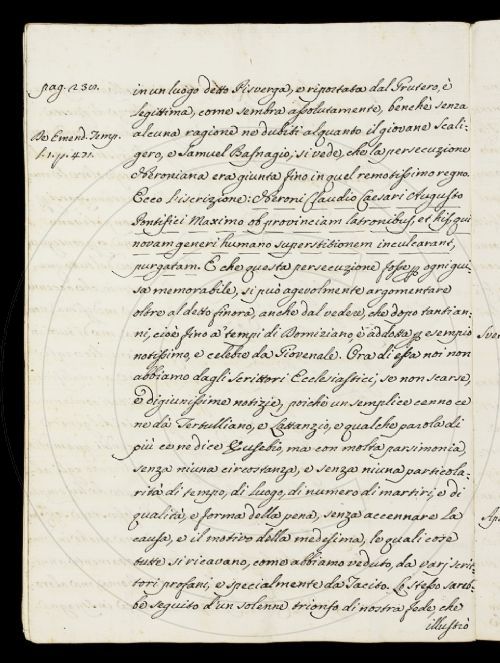 pag. 238.
De Emend. Temp.
l. 1. p. 471.
in un luogo detto Pisverga, e riportata dal Grutero, è
legittima, come sembra assolutamente, benchè senza
alcuna ragione ne dubiti alquanto il giovane Scali-
gero, e Samuel Basnagio, si vede, che la persecuzione
Neroniana era giunta fino in quel remotissimo regno.
Ecco l'iscrizione: Neroni Claudio Caesari Augusto
Pontifici Maximo ob provinciam latronibus, et his, qui
novam generi humano superstitionem inculcarant,
purgatam. E che questa persecuzione fosse p ogni gui-
sa memorabile, si può agevolmente argomentare
oltre al detto finora, anche dal vedere, che dopo tanti an-
ni, cioè fino a tempi di Domiziano è addotta p esempio
notissimo, e celebre da Giovenale. Ora di essa noi non
abbiamo dagli Scrittori Ecclesiastici, se non scarse,
e digiunissime notizie, poichè un semplice cenno ce
ne dà Tertulliano, e Lattanzio, e qualche parola di
più ce ne dice Eusebio, ma con molta parsimonia,
senza niuna circostanza, e senza niuna particola-
rità di tempo, di luogo, di numero di martiri, e di
qualità, e forma della pena, senza accennare la
causa, e il motivo della medesima, le quali cose
tutte si ricavano, come abbiamo veduto, da varj scrit-
tori profani, e specialmente da Tacito. Lo stesso sareb-
be seguito d'un solenne trionfo di nostra fede che
illustrò